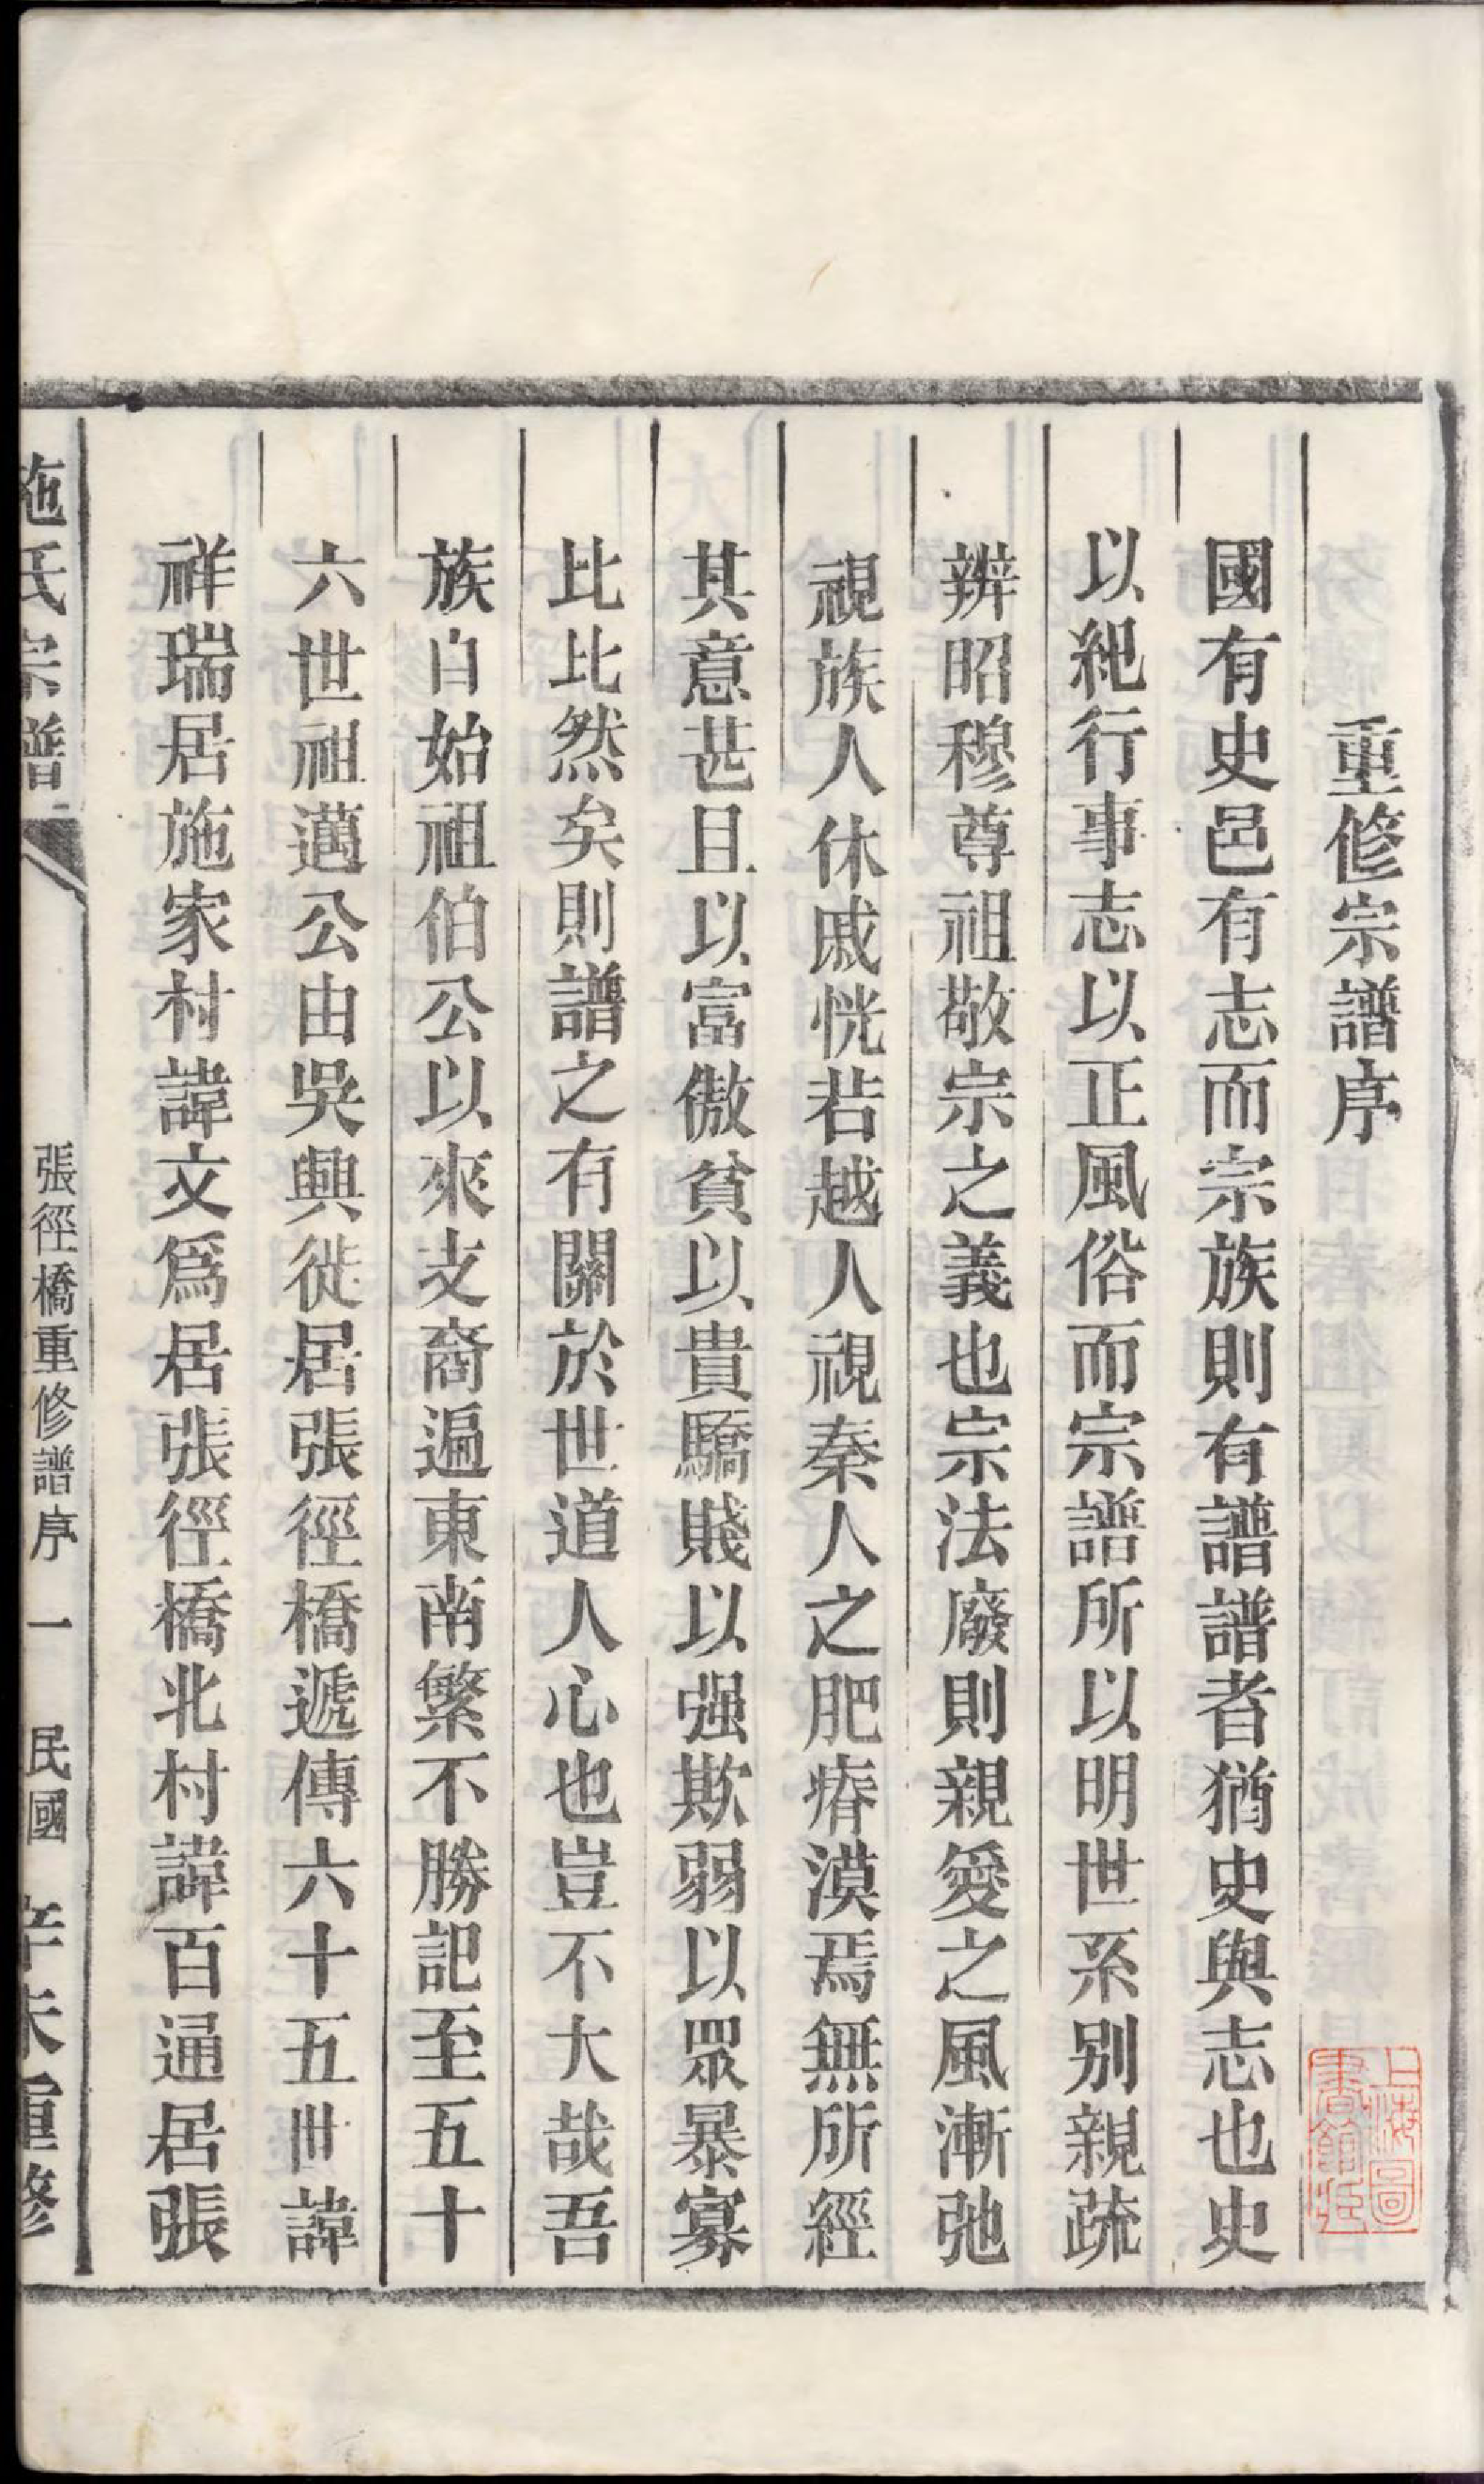 重修宗譜序
國有史邑有志而宗族則有譜譜者猶史與志也史
以紀行事志以正風俗而宗譜所以明世系别親疏
辨昭穆尊祖敬宗之義也宗法廢則親愛之風漸弛
視族人休戚恍若越人視秦人之肥瘠漠焉無所經
其意甚且以富傲貧以貴驕賤以强欺弱以眾暴寡
比比然矣則譜之有關於世道人心也豈不大哉吾
族自始祖伯公以來支裔遍東南繁不勝記至五十
六世祖邁公由吳興徙居張徑橋遞傳六十五世諱
祥瑞居施家村諱文爲居張徑橋北村諱百通居張
施氏宗譜
張徑橋重修譜序 一 民國 辛未重修
上海圖書館藏